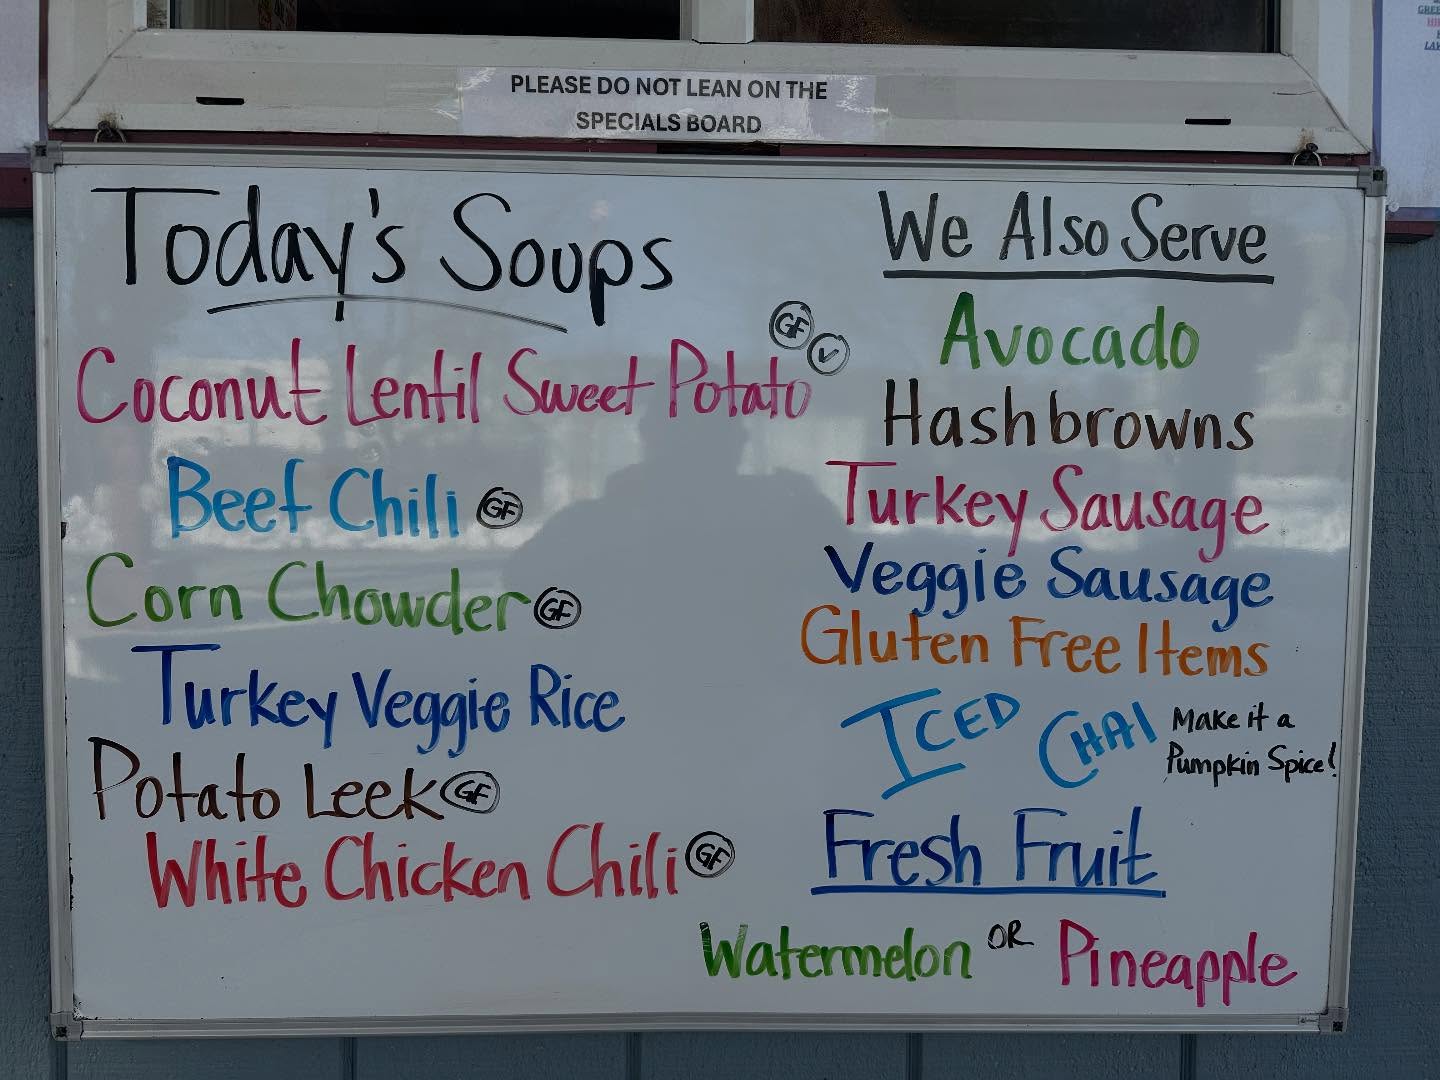 PLEASE DO NOT LEAN ON THE
SPECIALS BOARD
Today's Soups
Coconut Lentil Sweet Potato GF V
Beef Chili GF
Corn Chowder GF
Turkey Veggie Rice
Potato Leek GF
White Chicken Chili GF
We Also Serve
Avocado
Hashbrowns
Turkey Sausage
Veggie Sausage
Gluten Free Items
ICED CHAI Make it a
Pumpkin Spice!
Fresh Fruit
Watermelon OR Pineapple